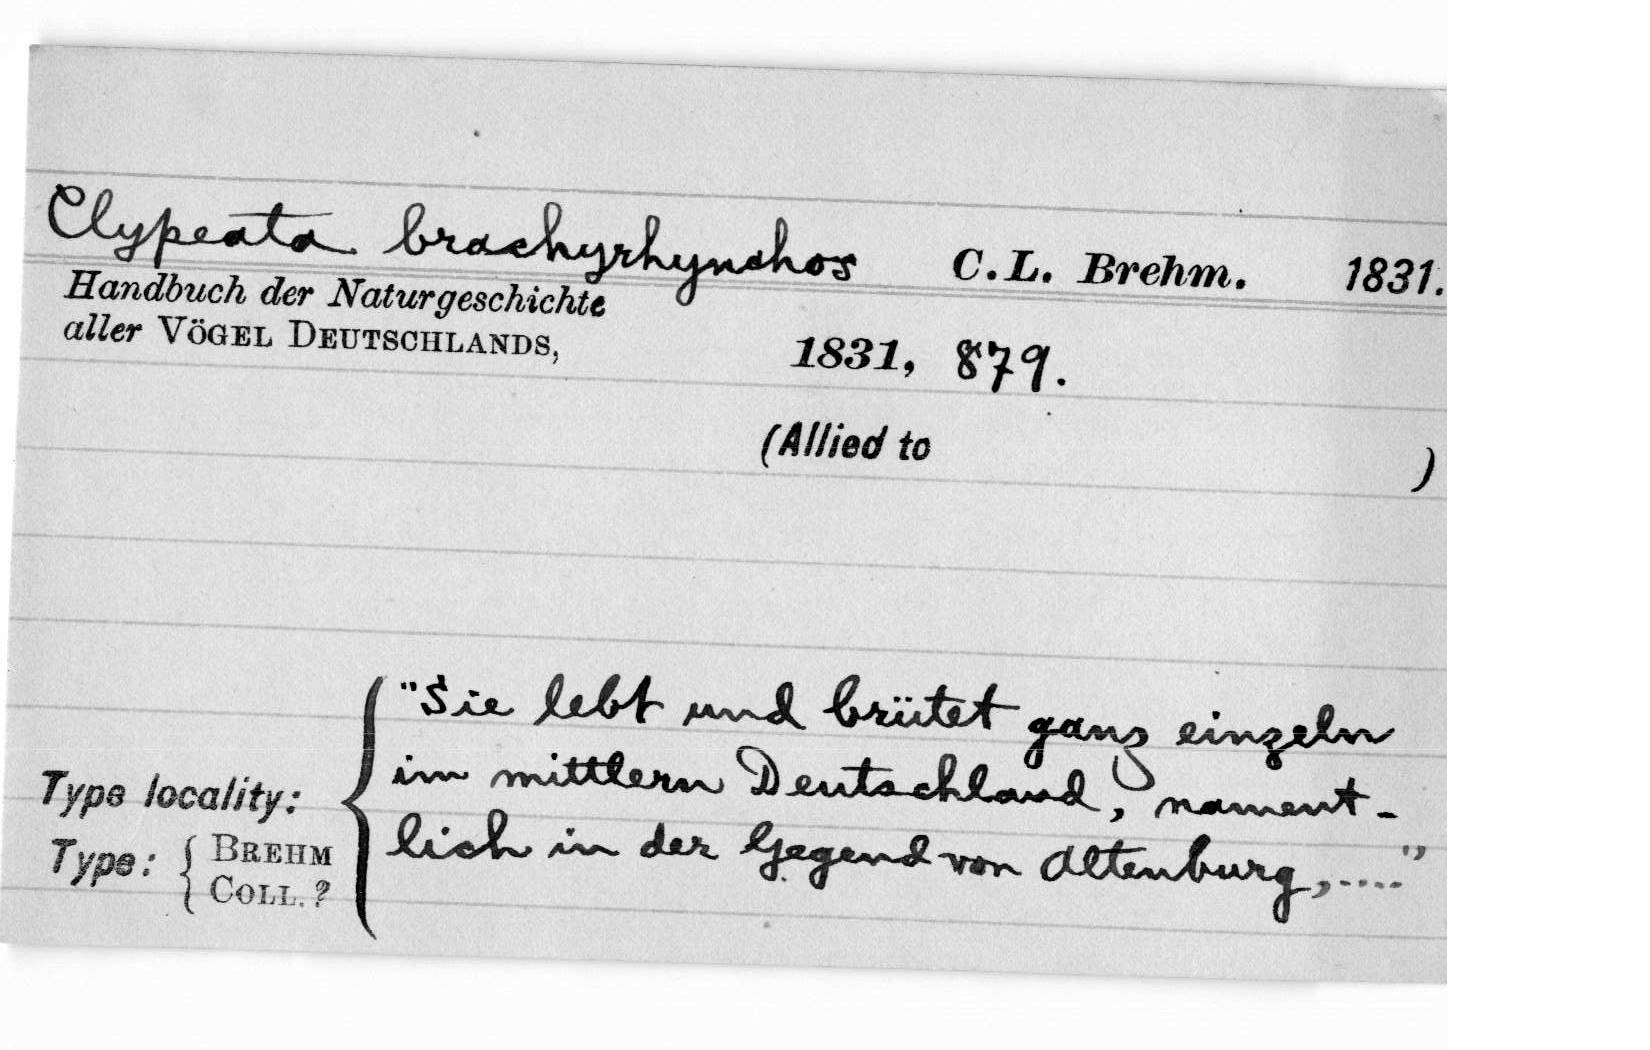 Clypeata brachyrhynchos C. L. Brehm. 1831.
Handbuch der Naturgeschichte
aller VÖGEL DEUTSCHLANDS,
1831, 879.
(Allied to )
"Sie lebt und brütet ganz einzeln
im mittlern Deutschland, nament-
lich in der Gegend von Altenburg,...."
Type locality:
Type: { BREHM
COLL. ?